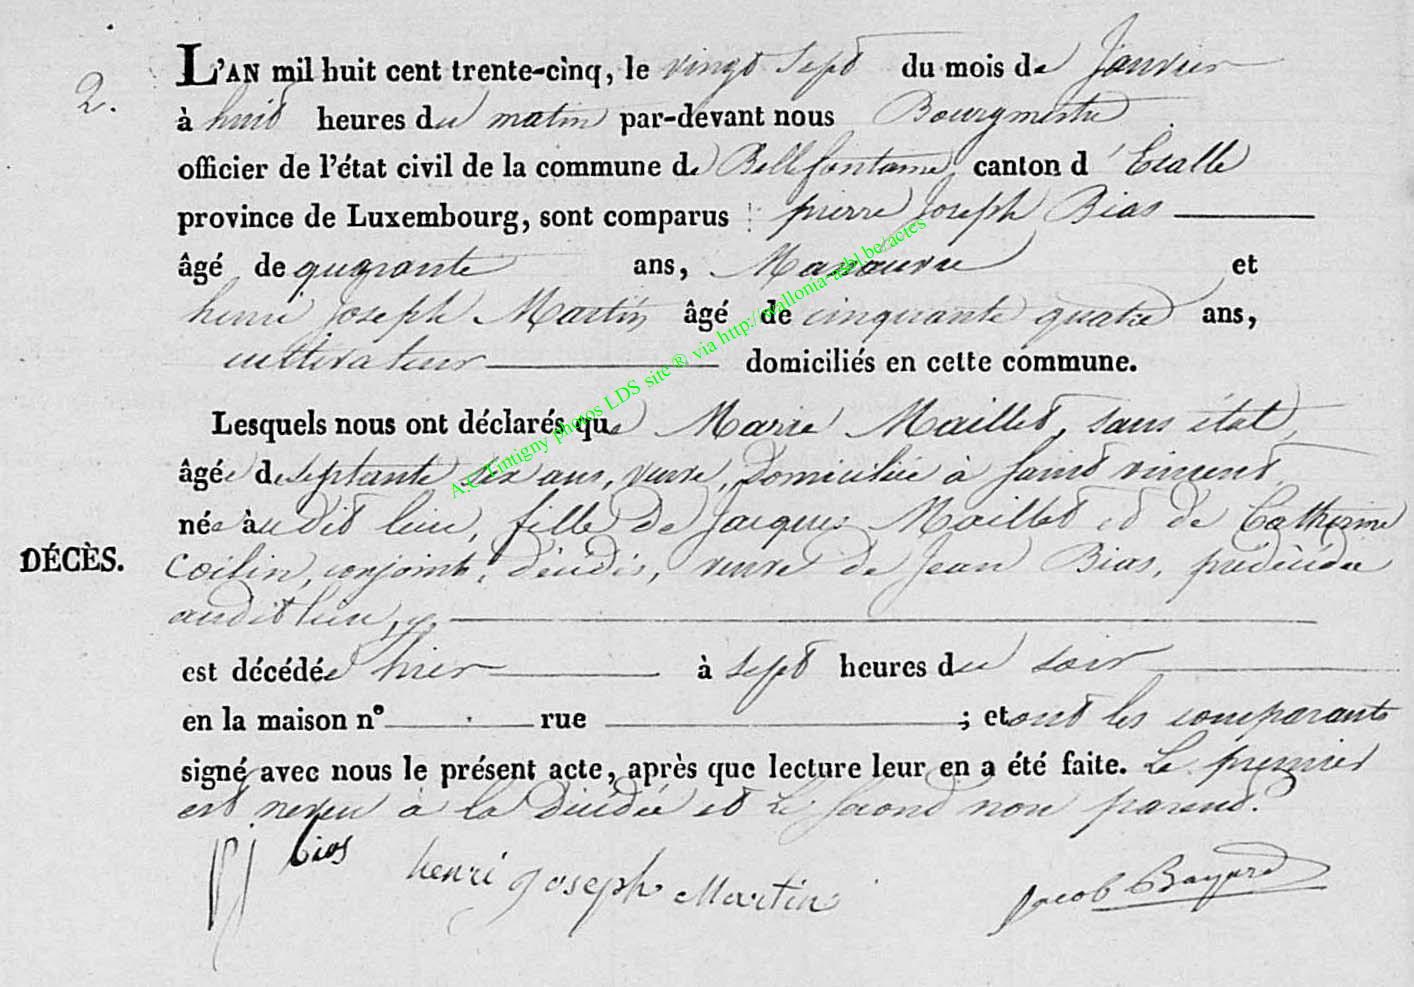 2.
L'AN mil huit cent trente-cinq, le vingt sept du mois de Janvier
à huit heures du matin par-devant nous Bourgmestre
officier de l'état civil de la commune de Bellefontaine, canton d'Etalle
province de Luxembourg, sont comparus pierre Joseph Bias
âgé de quarante ans, Manœuvre et
henri Joseph Martin âgé de cinquante quatre ans,
cultivateur domiciliés en cette commune.
Lesquels nous ont déclarés que Marie Maillet, sans état,
âgée de septante six ans, veuve, Domiciliée à saint vincent,
née audit lieu, fille de Jacques Maillet et de Catherine
DÉCÈS.
conjoints, décédés, veuve de Jean Bias, prédécédée
audit lieu,
est décédée hier à sept heures du soir
en la maison nº rue ; et ont les comparants
signé avec nous le présent acte, après que lecture leur en a été faite. Le premier
est neveu à la décédée et Le second non parent.
PJ Bias henri joseph Martin Jacob Bayard
A.C Tintigny photos LDS site ® via http://wallonia-asbl.be/actes